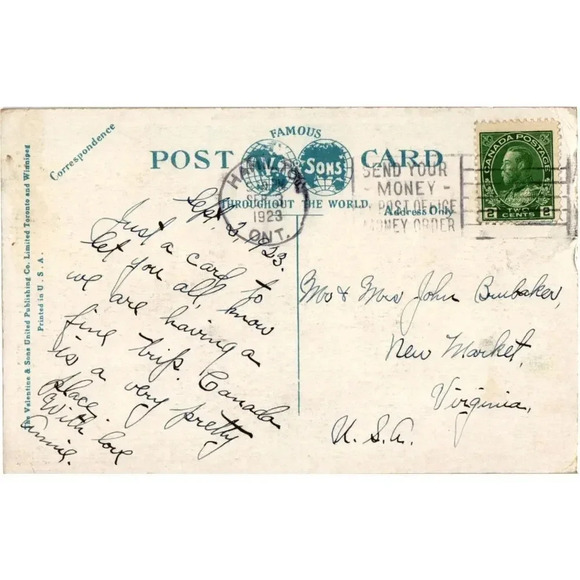 The Valentine & Sons United Publishing Co. Limited Toronto and Winnipeg
Printed in U. S. A.
Correspondence
FAMOUS
POST CARD
V&
SONS
THROUGHOUT THE WORLD.
Address Only
HAMILTON
1923
ONT.
SEND YOUR
MONEY
POST OFFICE
MONEY ORDER
CANADA POSTAGE
2 CENTS 2
Sept. 2, 1923.
Just a card to
let you all know
we are having a
fine trip. Canada
is a very pretty
place.
With love
Annie.
Mr & Mrs John Brubaker,
New Market,
Virginia,
U.S.A.